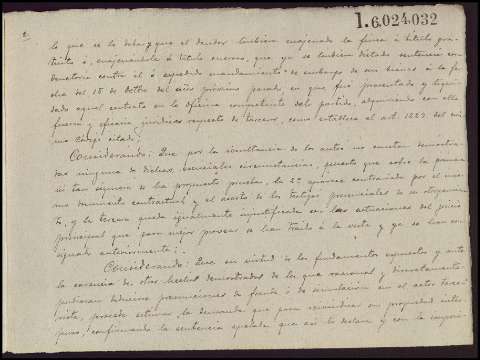 1.6.024.032
lo que se le deba y que el deudor tambien enajenado la finca á titulo gra-
tuito ó, enajenandola á titulo oneroso, que ya se hubiera dictado sentencia con-
denatoria contra él ó expedido mandamiento de embargo de sus bienes á la fe-
cha del 18 de Octbre del año próximo pasado, en que fué presentado y liqui-
dado aquel contrato en la oficina competente del partido, adquiriendo con ello
fuerza y eficacia jurídica respecto de terceros, como establece el art. 1227 del mis-
mo Código citado;
Considerando: Que por la resultancia de los autos no constan demostra-
das ninguna de dichas esenciales circunstancias, puesto que sobre la primera
ni tan siquiera se ha propuesto prueba, la 2ª aparece contrariada por el mis-
mo documento contractual y el aserto de los testigos presenciales de su otorgamien-
to, y la tercera queda igualmente injustificada con las actuaciones del juicio
principal que para mejor proveer se han traido á la vista y ya se han con-
signado anteriormente;
Considerando: Que en virtud de los fundamentos expuestos y ante
la carencia de otros hechos demostrados de los que racional y directamente
pudieran deducirse presunciones de fraude ó de simulación en el acto
procede estimar la demanda que para reivindicar su propiedad inter-
puso, confirmando la sentencia apelada que así lo declara y con la imposi-